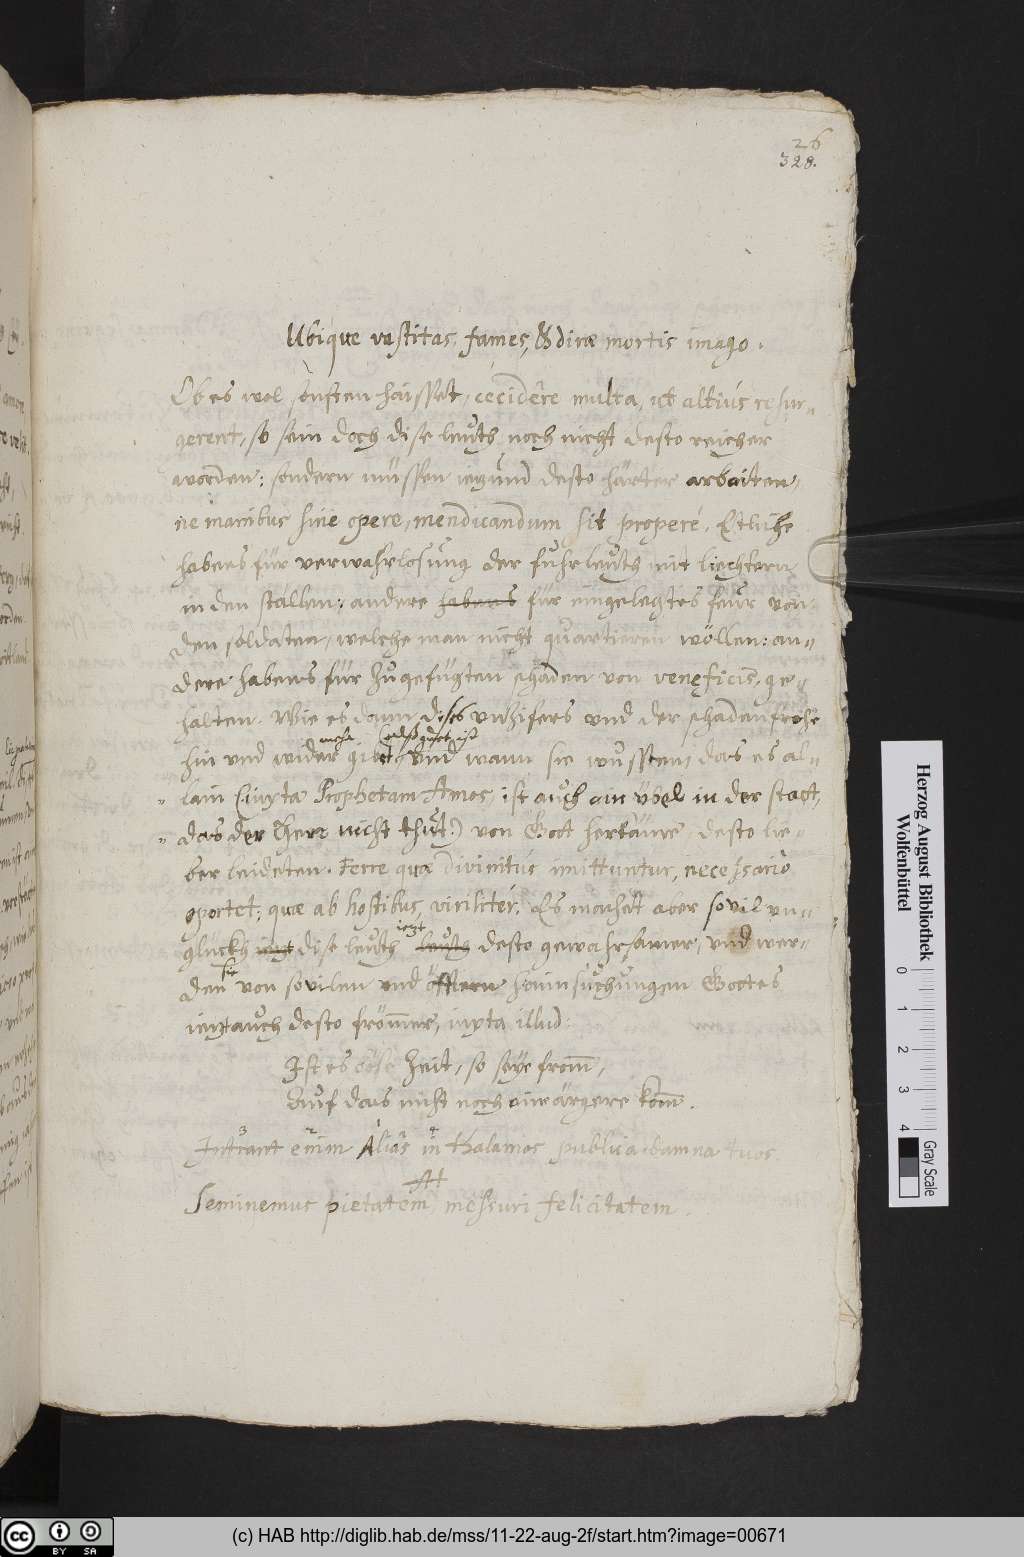 26
328.
Ubique vastitas, fames, & diræ mortis imago.
Ob es wol sonsten haisset, cecidêre multa, ut altiùs resur-
gerent, so sein doch dise leuth noch nicht desto reicher
worden: sondern müssen iezund desto härter arbaiten,
ne manibus sine opere, mendicandum sit properè. Etliche
habens für verwahrlosung der fuhrleuth mit liechtern
in den ställen: andere habens für eingelegtes feur von
den soldaten, welche man nicht quartieren wöllen: an-
dere habens für zugefügten schaden von veneficis, ge-
halten. Wie es dann dises unzifers und der schadenfrohe
mehr
hin und wider gibet, und wann sie wussten, das es al-
lain (iuxta Prophetam Amos, ist auch ain übel in der statt,
das der Herr nicht thut?) von Gott herkäme, desto lie-
ber leideten. Ferre quæ divinitùs immittuntur, necessariò
oportet; quæ ab hostibus, viriliter. Es machet aber sovil un-
iezt
glückh iezt dise leuth leuth desto gewahrsamer, und wer-
sie
den von sovilen und öfftern haimsuchungen Gottes
iezt auch desto frömmer, iuxta illud:
Ist es böse Zeit, so seye from̄,
Auf das nicht noch ain ärgere kom̄.
3 2 1 4
Intrant enim Alias in thalamos publica damna tuos.
At
Seminemus pietatem, messuri felicitatem.
Herzog August Bibliothek
Wolfenbüttel
0 1 2 3 4
Gray Scale
cc BY SA
(c) HAB http://diglib.hab.de/mss/11-22-aug-2f/start.htm?image=00671